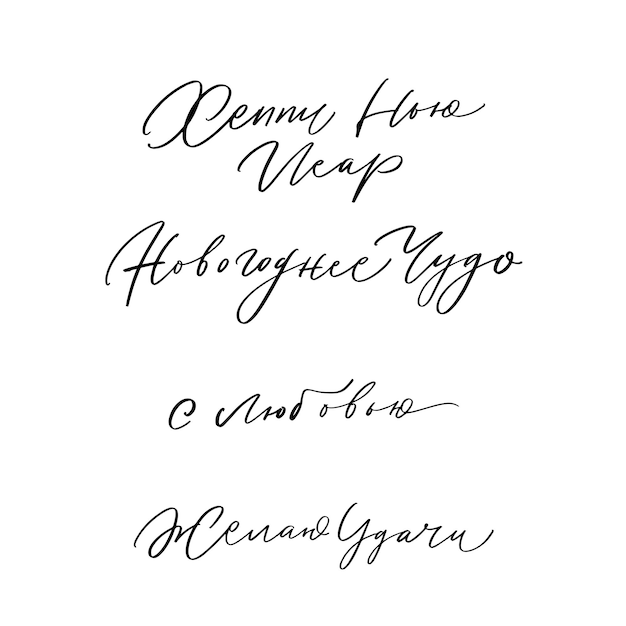 Хеппи Нью
Иеар
Новогоднее Чудо
с Любовью
Желаю Удачи